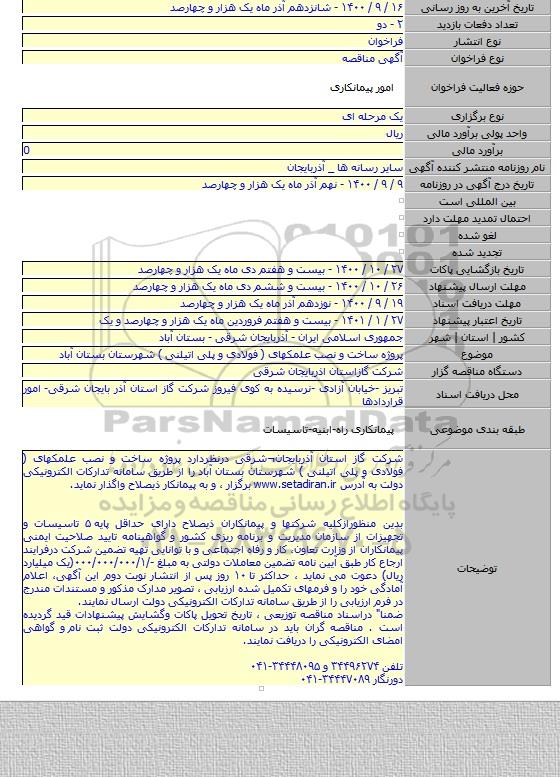 تاریخ آخرین به روز رسانی ۱۶ / ۹ / ۱۴۰۰ - شانزدهم آذر ماه یک هزار و چهارصد
تعداد دفعات بازدید ۲ - دو
نوع انتشار فراخوان
نوع فراخوان آگهی مناقصه
حوزه فعالیت فراخوان امور پیمانکاری
نوع برگزاری یک مرحله ای
واحد پولی برآورد مالی ریال
برآورد مالی 0
نام روزنامه منتشر کننده آگهی سایر رسانه ها _ آذربایجان
تاریخ درج آگهی در روزنامه ۹ / ۹ / ۱۴۰۰ - نهم آذر ماه یک هزار و چهارصد
بین المللی است
احتمال تمدید مهلت دارد
لغو شده
تجدید شده
تاریخ بازگشایی پاکات ۲۷ / ۱۰ / ۱۴۰۰ - بیست و هفتم دی ماه یک هزار و چهارصد
مهلت ارسال پیشنهاد ۲۶ / ۱۰ / ۱۴۰۰ - بیست و ششم دی ماه یک هزار و چهارصد
مهلت دریافت اسناد ۱۹ / ۹ / ۱۴۰۰ - نوزدهم آذر ماه یک هزار و چهارصد
تاریخ اعتبار پیشنهاد ۲۷ / ۱ / ۱۴۰۱ - بیست و هفتم فروردین ماه یک هزار و چهارصد و یک
کشور | استان | شهر جمهوری اسلامی ایران - آذربایجان شرقی - بستان آباد
موضوع پروژه ساخت و نصب علمکهای ( فولادی و پلی اتیلنی ) شهرستان بستان آباد
دستگاه مناقصه گزار شرکت گازاستان اذربایجان شرقی
محل دریافت اسناد تبریز -خیابان آزادی -نرسیده به کوی فیروز شرکت گاز استان آذر بایجان شرقی- امور
قراردادها
طبقه بندی موضوعی پیمانکاری راه-ابنیه-تاسیسات
شرکت گاز استان آذربایجان¬شرقی درنظردارد پروژه ساخت و نصب علمکهای (
فولادی و پلی اتیلنی ) شهرستان بستان آباد را از طریق سامانه تدارکات الکترونیکی
دولت به آدرس www.setadiran.ir برگزار ، و به پیمانکار ذیصلاح واگذار نماید.
بدین منظورازکلیه شرکتها و پیمانکاران ذیصلاح دارای حداقل پایه ۵ تاسیسات و
تجهیزات از سازمان مدیریت و برنامه ریزی کشور و گواهینامه تایید صلاحیت ایمنی
پیمانکاران از وزارت تعاون، کار و رفاه اجتماعی و با توانایی تهیه تضمین شرکت درفرایند
ارجاع کار طبق آیین نامه تضمین معاملات دولتی به مبلغ -/۰۰۰/۰۰۰/۰۰۰/۱(یک میلیارد
ریال) دعوت می نماید ، حداکثر تا ۱۰ روز پس از انتشار نوبت دوم این آگهی، اعلام
آمادگی خود را و فرمهای تکمیل شده ارزیابی ، تصویر مدارک مذکور و مستندات مندرج
در فرم ارزیابی را از طریق سامانه تدارکات الکترونیکی دولت ارسال نمایند.
توضیحات
ضمنا" دراسناد مناقصه توزیعی ، تاریخ تحویل پاکات وگشایش پیشنهادات قید گردیده
است . مناقصه گران باید در سامانه تدارکات الکترونیکی دولت ثبت نام و گواهی
امضای الکترونیکی را دریافت نمایند.
تلفن ۳۴۴۹۶۲۷۴ و ۳۴۴۴۸۰۹۵-۰۴۱
دورنگار ۳۴۴۴۷۰۸۹-۰۴۱
ParsNamadData
پایگاه اطلاع رسانی مناقصه و مزایده